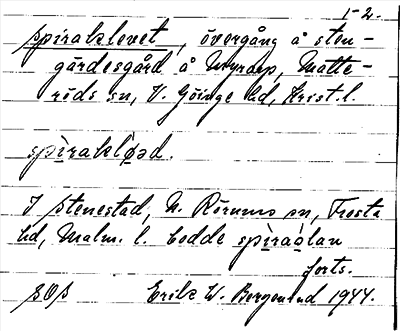 1-2.
spiraklevet, övergång å sten-
gärdesgård å Myrarp, Matte-
röds sn, V. Göinge hd, Krist. l.
spìraklø̀əd.
I Stenestad, N. Rörums sn, Frosta
hd, Malm. l. bodde spìraòlan
forts.
SOS Erik W. Bergenlud 1944.